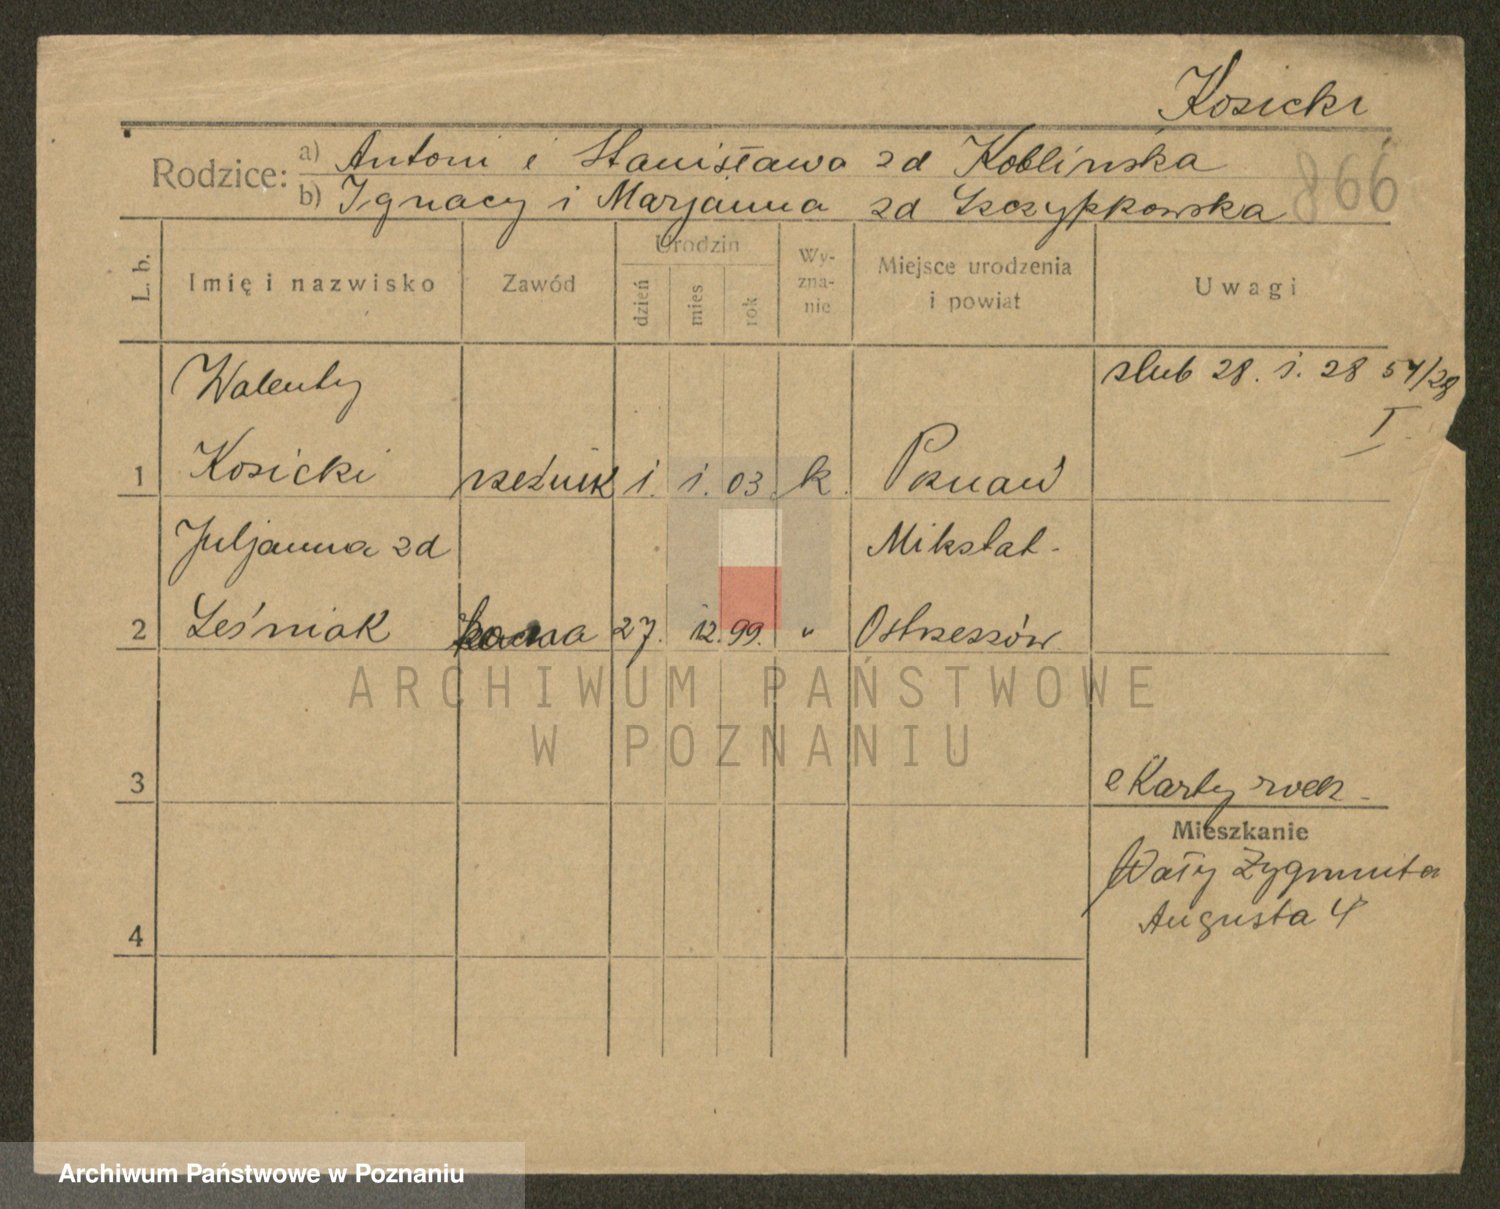 Kosicki
Rodzice: a) Antoni i Stanisława zd Koblińska
b) Ignacy i Marjanna zd Szczypkowska
866
L. b. Imię i nazwisko Zawód Urodzin dzień mies rok Wy-zna-nie Miejsce urodzenia i powiat Uwagi
Walenty ślub 28. 1. 28 54/28
I
1 Kosicki rzeźnik 1. 1. 03 k. Poznań
Juljanna zd Mikstat-
2 Leśniak 27. 12. 99. " Ostrzeszów
ARCHIWUM PAŃSTWOWE
W POZNANIU
3
Karty rodz.
Mieszkanie
Wały Zygmunta
Augusta 4
4
Archiwum Państwowe w Poznaniu